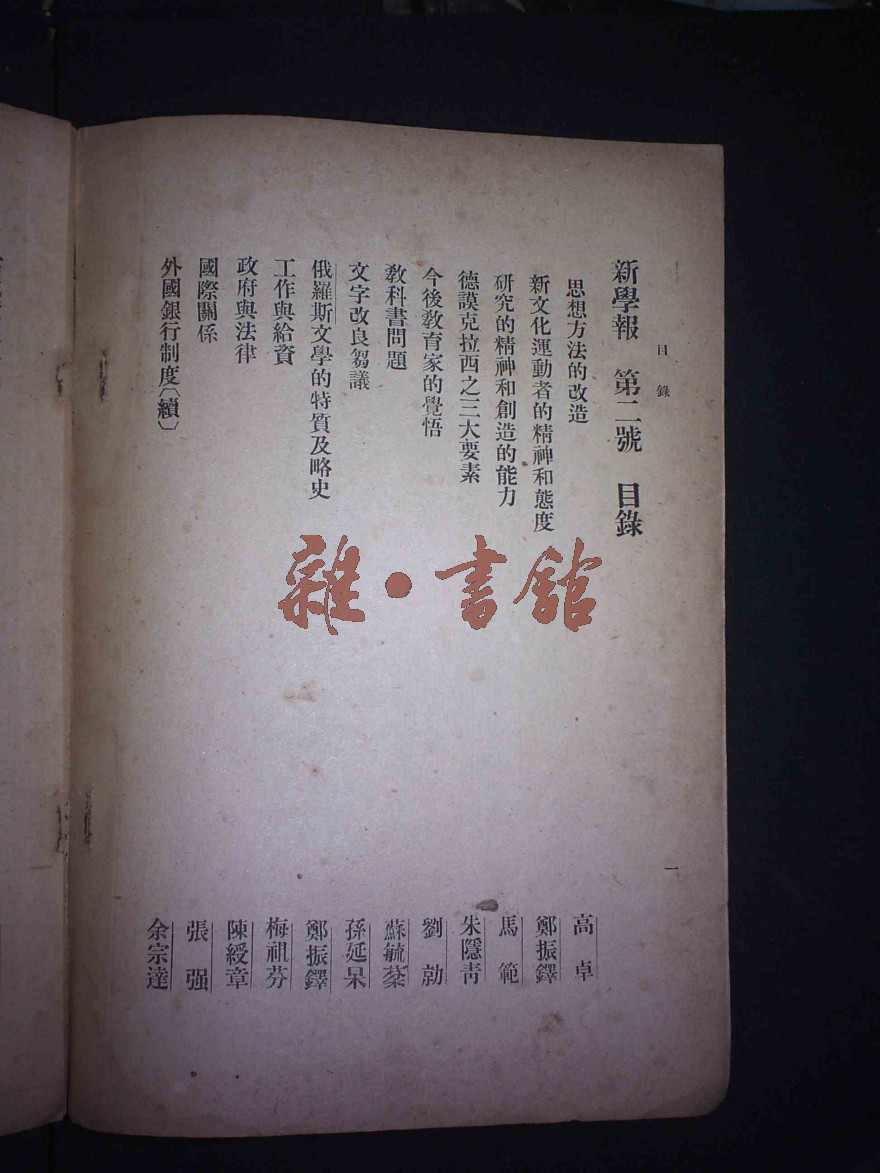 目錄
一
新學報 第二號 目錄
思想方法的改造 高卓
新文化運動者的精神和態度 鄭振鐸
研究的精神和創造的能力 馬範
德謨克拉西之三大要素 朱隱青
今後教育家的覺悟 劉勍
教科書問題 蘇毓棻
文字改良芻議 孫延杲
俄羅斯文學的特質及略史 鄭振鐸
工作與給資 梅祖芬
政府與法律 陳綬章
國際關係 張强
外國銀行制度(續) 余宗達
雜·書館